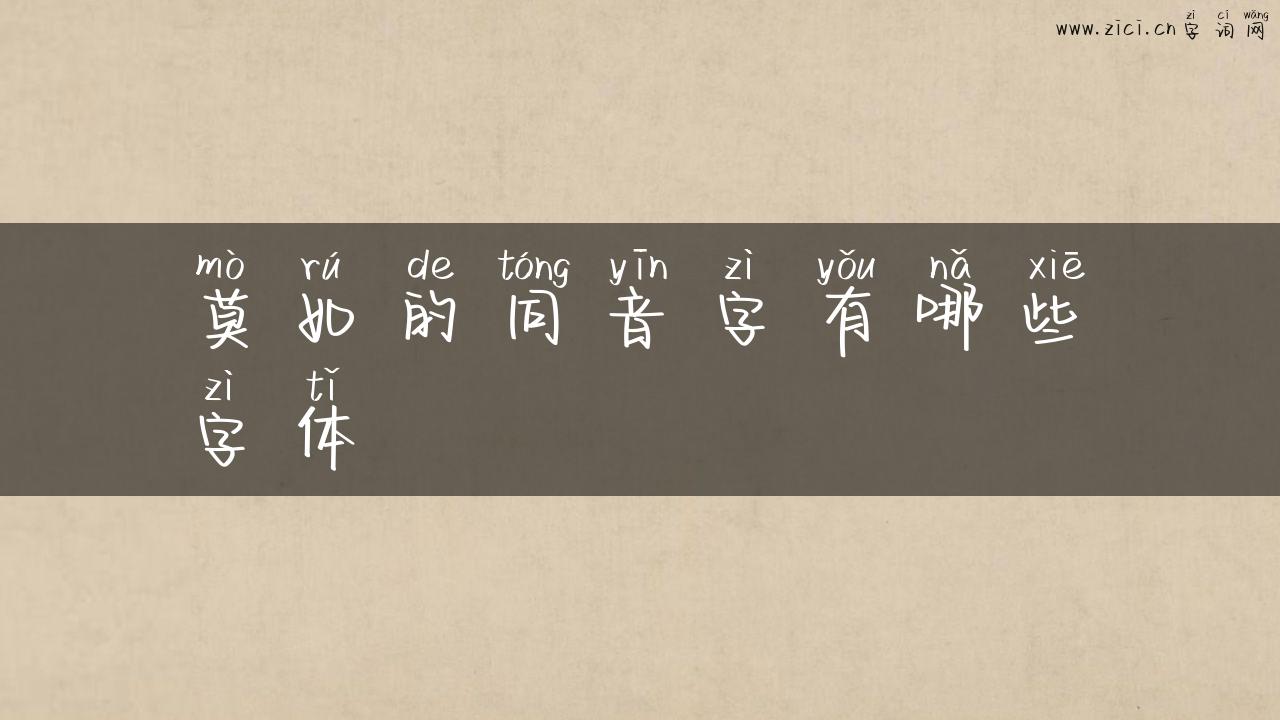 zì cí wǎng
www.zici.cn 字词网
mò rú de tóng yīn zì yǒu nǎ xiē
莫如的同音字有哪些
zì tǐ
字体